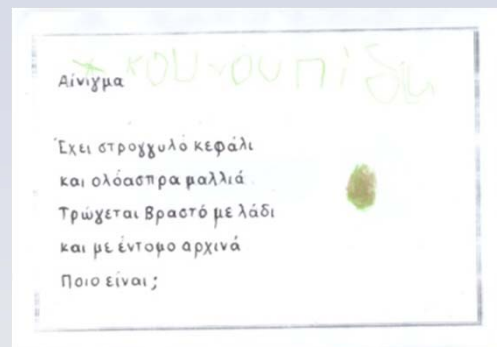 * κουνουπίδι
Αίνιγμα
Έχει στρογγυλό κεφάλι
και ολόασπρα μαλλιά.
Τρώγεται βραστό με λάδι
και με έντομο αρχινά
Ποιο είναι;